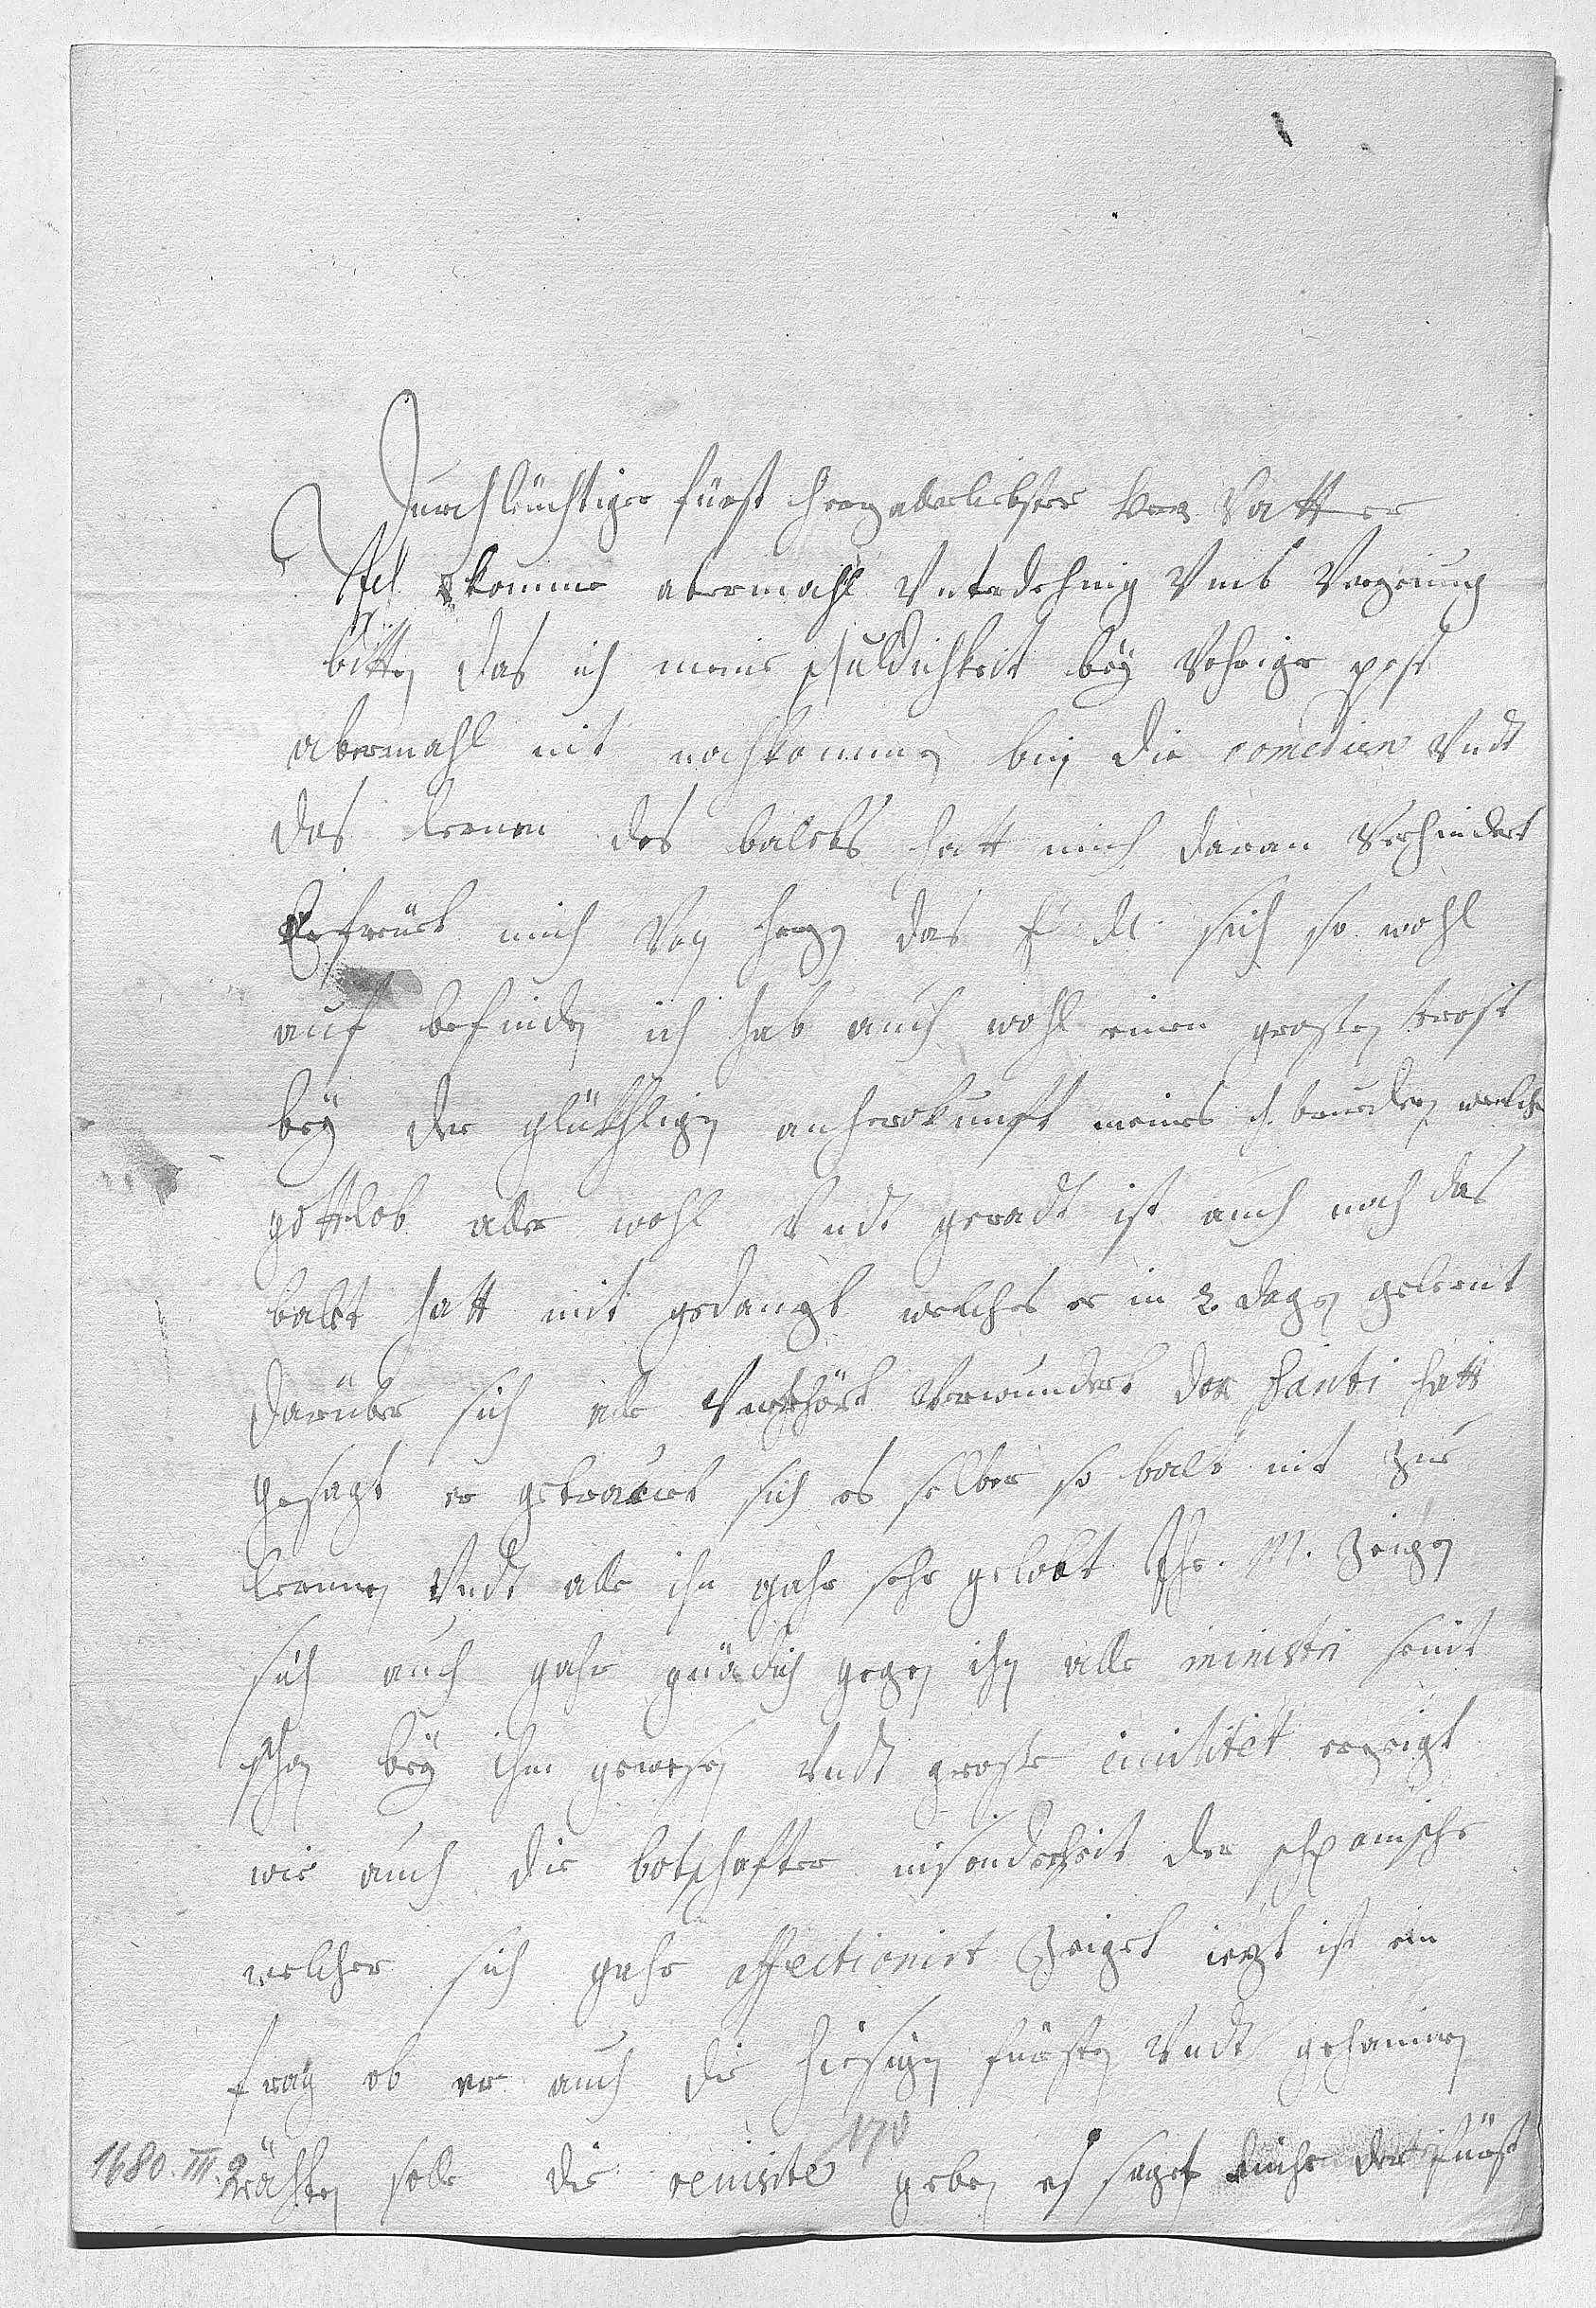 Durchleuchtiger fürst herzallerliebster herr Vatter
Ich komme abermahl Vnterdehnig Vmb Verzeiung
bitten das ich meine schuldichkeit bey Vohriger post
abermahl nit nachkommen bin die comedien Vndt
das lernen des balets hatt mich daran Verhindert
Erfreuet mich Von herzen das E dl sich so wohl
auf befinden ich hab auch wohl einen grosten trost
bey der glükhligen anherokunft meines h. bruedern welcher
gottlob aller wohl Vndt geradt ist auch noch das
balet hatt mit gedanzt welches er in 2. dagen gelernt
darüber sich alle Vnerhört Verwundert der Santi hatt
gesagt er getrauet sich es selber so balt nit zu
lernen Vndt alle ihn gahr sehr gelobt Ihr. M. zeigen
sich auch gahr gnädich gegen ihn alle ministri seint
schon bey ihm gewesen Vndt grosse ciuilitet erzeigt
wie auch die botschafter insonderheit der schpanische
welcher sich gahr affectionirt zeiget iezt ist ein
frag ob er auch die hiesigen fürsten Vndt gehaimen
Räthen solle die reuisite geben es saget der fürst
170
1680. III. 9